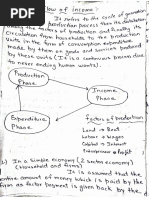 low of income :
It refers to the circle of generation
production process then its distribution
among the factors of production and finally its
circulation from households to the production
units in the form of consumption expenditure
made by them on goods and services produced
by these units (It is a continuous process due
to never ending human wants).
Production
Phase
Income
Phase
Expenditure
Phase
factors of Production
Land → Rent
Labour → Wages
Capital → Interest
Entrepreneur → Profit
In a Simple economy (2 sector economy)
(household and firms)
It is assumed that the
entire amount of money which is paid by the
firm as factor payment is given back by the